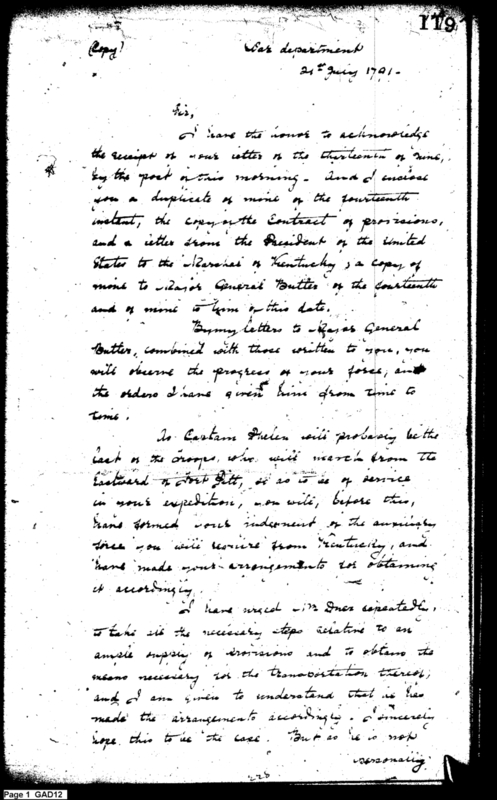 119
(Copy)
War department
21st July 1791.
Sir,
I have the honor to acknowledge
the receipt of your letter of the thirteenth of June,
by the post of this morning. And I enclose
you a duplicate of mine of the fourteenth
instant, the copy of the Contract of provisions,
and a letter from the President of the United
States to the Marshal of Kentucky, a copy of
mine to Major General Butler of the fourteenth
and of mine to him of this date.
By my letters to Major General
Butler, combined with those written to you, you
will observe the progress of your force, and
the orders I have given him from time to
time.
As Captain Phelon will probably be the
last of the troops, who will march from the
Eastward of Fort Pitt, so as to be of service
in your expedition, you will, before this,
have formed your judgment of the auxiliary
force you will require from Kentucky, and
have made your arrangements for obtaining
it accordingly.
I have urged Mr Duer repeatedly,
to take all the necessary steps relative to an
ample supply of provisions and to obtain the
means necessary for the transportation thereof;
and I am given to understand that he has
made the arrangements accordingly. I sincerely
hope this to be the case. But as he is not
personally
226
Page 1 GAD12